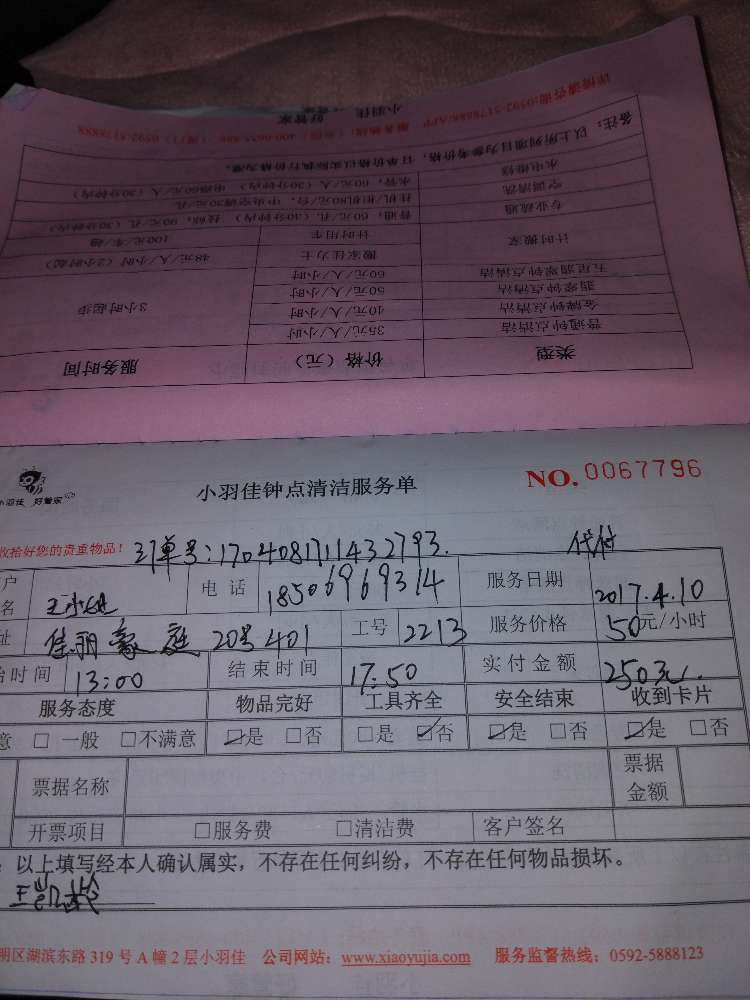 类型 价格（元） 服务时间
普通钟点清洁 35元/人/小时 3小时起步
金牌钟点清洁 40元/人/小时
翡翠钟点清洁 50元/人/小时
五星翡翠钟点清洁 60元/人/小时
计时搬家 搬家佳力士 48元/人/小时（2小时起）
计时用车 100元/车/趟
专业疏通 普通，60元/孔（30分钟内）
空调清洗
水电维修 水管，60元/人（30分钟内）
备注：以上所列项目为参考价格，订单价格以实际执行价格为准。
小羽佳 好管家
小羽佳 好管家
小羽佳钟点清洁服务单
NO. 0067796
收拾好您的贵重物品！
订单号：1704081711432793.
代付
户名 电话 18506969314 服务日期 2017.4.10
址 佳丽豪庭 20号401 工号 2213 服务价格 50元/小时
始时间 13:00 结束时间 17:50 实付金额 250元.
服务态度 物品完好 工具齐全 安全结束 收到卡片
意 □ 一般 □不满意 ☑是 □否 □是 ☑否 ☑是 □否 ☑是 □否
票据名称 票据金额
开票项目 □服务费 □清洁费 客户签名
以上填写经本人确认属实，不存在任何纠纷，不存在任何物品损坏。
明区湖滨东路 319 号 A 幢 2 层小羽佳 公司网站：www.xiaoyujia.com 服务监督热线：0592-5888123